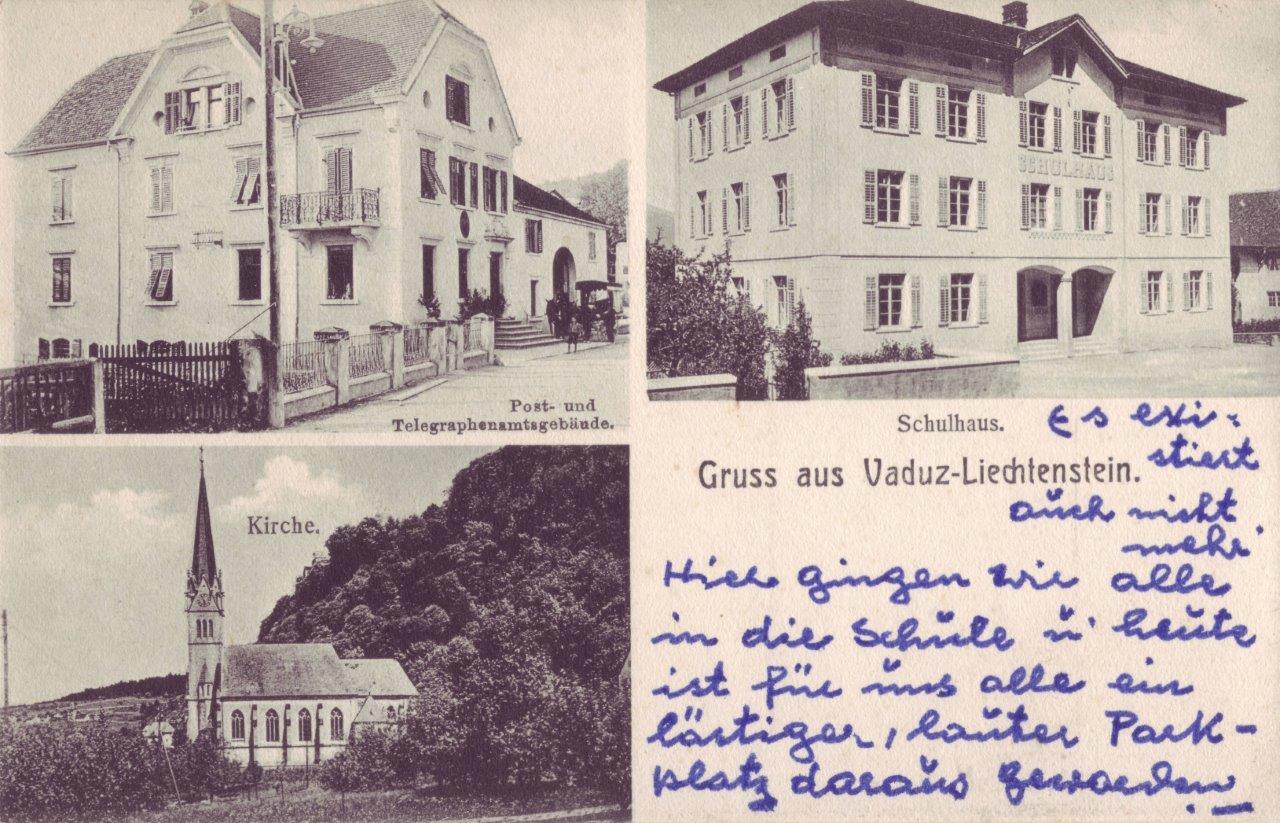 Post- und
Telegraphenamtsgebäude.
SCHULHAUS
Schulhaus.
Kirche.
Gruss aus Vaduz-Liechtenstein.
Es exi-
stiert
auch nicht
mehr
Hier gingen wir alle
in die Schule u. heute
ist für uns alle ein
lästiger, lauter Park-
platz daraus geworden.